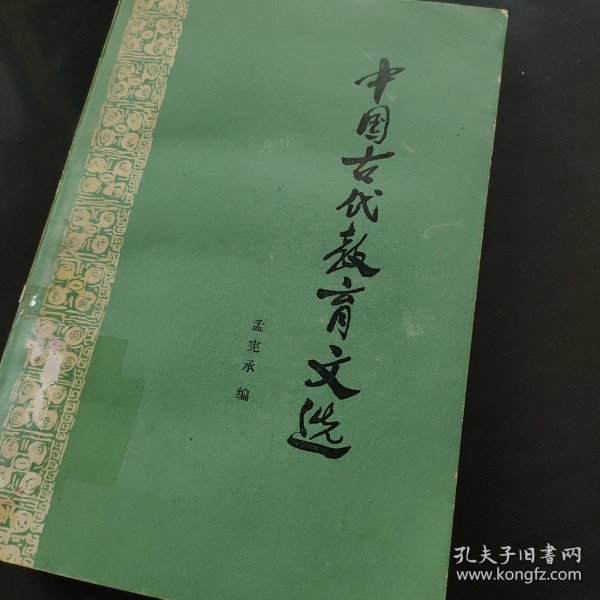 中国古代教育文选
孟宪承编
孔夫子旧书网
www.kongfz.com